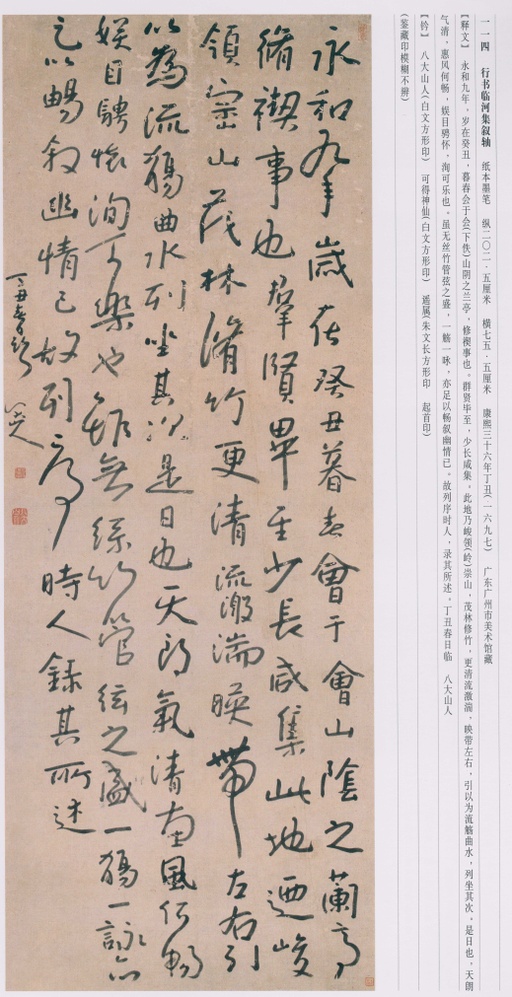 一一四 行书临河集叙轴 纸本墨笔 纵二〇二·五厘米 横七五·五厘米 康熙三十六年丁丑(一六九七) 广东广州市美术馆藏
【释文】 永和九年，岁在癸丑，暮春会于会(下佚)山阴之兰亭，修禊事也。群贤毕至，少长咸集，此地乃峻领(岭)崇山，茂林修竹，更清流激湍，映带左右，引以为流觞曲水，列坐其次，是日也，天朗
气清，惠风何畅，娱目骋怀，洵可乐也。虽无丝竹管弦之盛，一觞一咏，亦足以畅叙幽情已。故列序时人，录其所述，丁丑春日临 八大山人
【钤】 八大山人(白文方形印) 可得神仙(白文方形印) 遥属(朱文长方形印 起首印)
(鉴藏印模糊不辨)
永和九年歲在癸丑暮春會于會山陰之蘭亭
脩禊事也羣賢畢至少長咸集此地迺峻
領崇山茂林脩竹更清流激湍暎帶左右引
以為流觴曲水列坐其次是日也天朗氣清惠風何暢
娱目騁懷洵可樂也雖無絲竹管弦之盛一觴一詠亦
足以暢敘幽情已故列序時人錄其所述
丁丑春日臨
八大山人